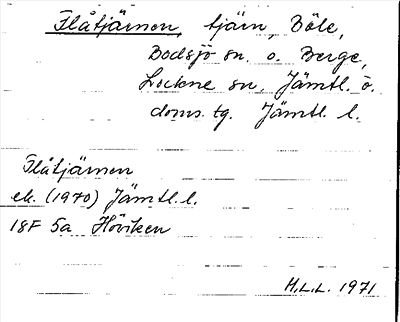 Flåtjärnen, tjärn, Böle,
Bodsjö sn. o. Berge,
Lockne sn, Jämtl. ö.
doms. tg. Jämtl. l.
Flåtjärnen
ek. (1970) Jämtl. l.
18F 5a Höviken
H.L.L. 1971